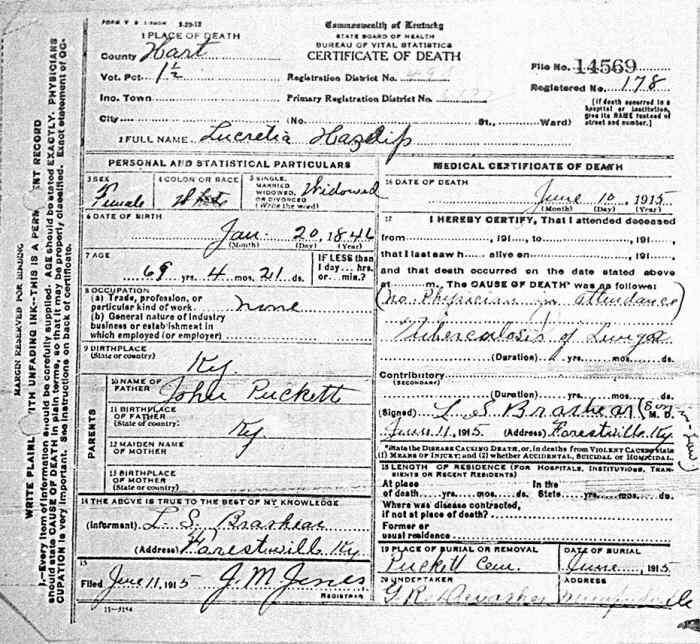 FORM V. S. 5-29-12
Commonwealth of Kentucky
STATE BOARD OF HEALTH
BUREAU OF VITAL STATISTICS
CERTIFICATE OF DEATH
1 PLACE OF DEATH
County Hart
Vot. Pct 1½
Registration District No.
File No. 14569
Registered No. 178
Inc. Town
Primary Registration District No.
[If death occurred in a hospital or institution, give its NAME instead of street and number.]
City (No. St., Ward)
2 FULL NAME Lucretia Hazelip
PERSONAL AND STATISTICAL PARTICULARS
3 SEX Female
4 COLOR OR RACE White
5 SINGLE, MARRIED, WIDOWED, OR DIVORCED (Write the word) Widowed
6 DATE OF BIRTH
Jan. 20, 1846
(Month) (Day) (Year)
7 AGE
69 yrs. 4 mos. 21 ds.
IF LESS than 1 day... hrs. or... min.?
8 OCCUPATION
(a) Trade, profession, or particular kind of work none
(b) General nature of industry business or establishment in which employed (or employer)
9 BIRTHPLACE
(State or country) Ky.
PARENTS
10 NAME OF FATHER John Puckett
11 BIRTHPLACE OF FATHER (State or country) Ky
12 MAIDEN NAME OF MOTHER
13 BIRTHPLACE OF MOTHER (State or country)
14 THE ABOVE IS TRUE TO THE BEST OF MY KNOWLEDGE
(Informant) L. S. Brashear
(Address) Forestville Ky.
15
Filed June 11, 1915 J. M. Jones
REGISTRAR
11-3184
MEDICAL CERTIFICATE OF DEATH
16 DATE OF DEATH
June 10, 1915
(Month) (Day) (Year)
17 I HEREBY CERTIFY, That I attended deceased
from , 191 , to , 191 ,
that I last saw h alive on , 191 ,
and that death occurred on the date stated above
at m. The CAUSE OF DEATH* was as follows:
(No Physician in attendance)
Tuberculosis of Lungs
(Duration) yrs. mos. ds.
Contributory
(SECONDARY)
(Duration) yrs. mos. ds.
(Signed) L. S. Brashear M. D.
June 11, 1915 (Address) Forestville Ky.
*State the DISEASE CAUSING DEATH, or, in deaths from VIOLENT CAUSES, state (1) MEANS OF INJURY; and (2) whether ACCIDENTAL, SUICIDAL or HOMICIDAL
18 LENGTH OF RESIDENCE (FOR HOSPITALS, INSTITUTIONS, TRANSIENTS OR RECENT RESIDENTS)
At place of death yrs. mos. ds. In the State yrs. mos. ds.
Where was disease contracted, if not at place of death?
Former or usual residence
19 PLACE OF BURIAL OR REMOVAL
Puckett Cem.
DATE OF BURIAL
June , 1915
20 UNDERTAKER
G. R.
ADDRESS
MARGIN RESERVED FOR BINDING
WRITE PLAINL ITH UNFADING INK--THIS IS A PERM ENT RECORD
).--Every item of information should be carefully supplied. AGE should be stated EXACTLY. PHYSICIANS
should state CAUSE OF DEATH in plain terms, so that it may be properly classified. Exact statement of OC-
CUPATION is very important. See instructions on back of certificate.